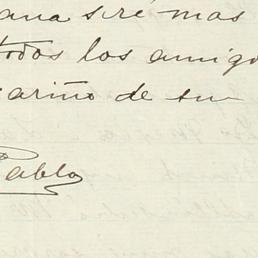 ana seré mas
todos los amigo
cariño de su
Pablo